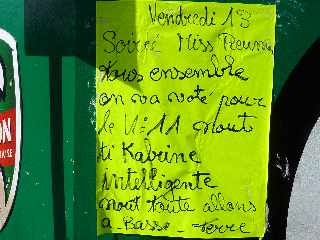 Vendredi 13
Soirée Miss Réunion
tous ensemble
on va voté pour
le N° 11 nout
ti Kafrine
intelligente
nout toute allons
a Basse-Terre
ON